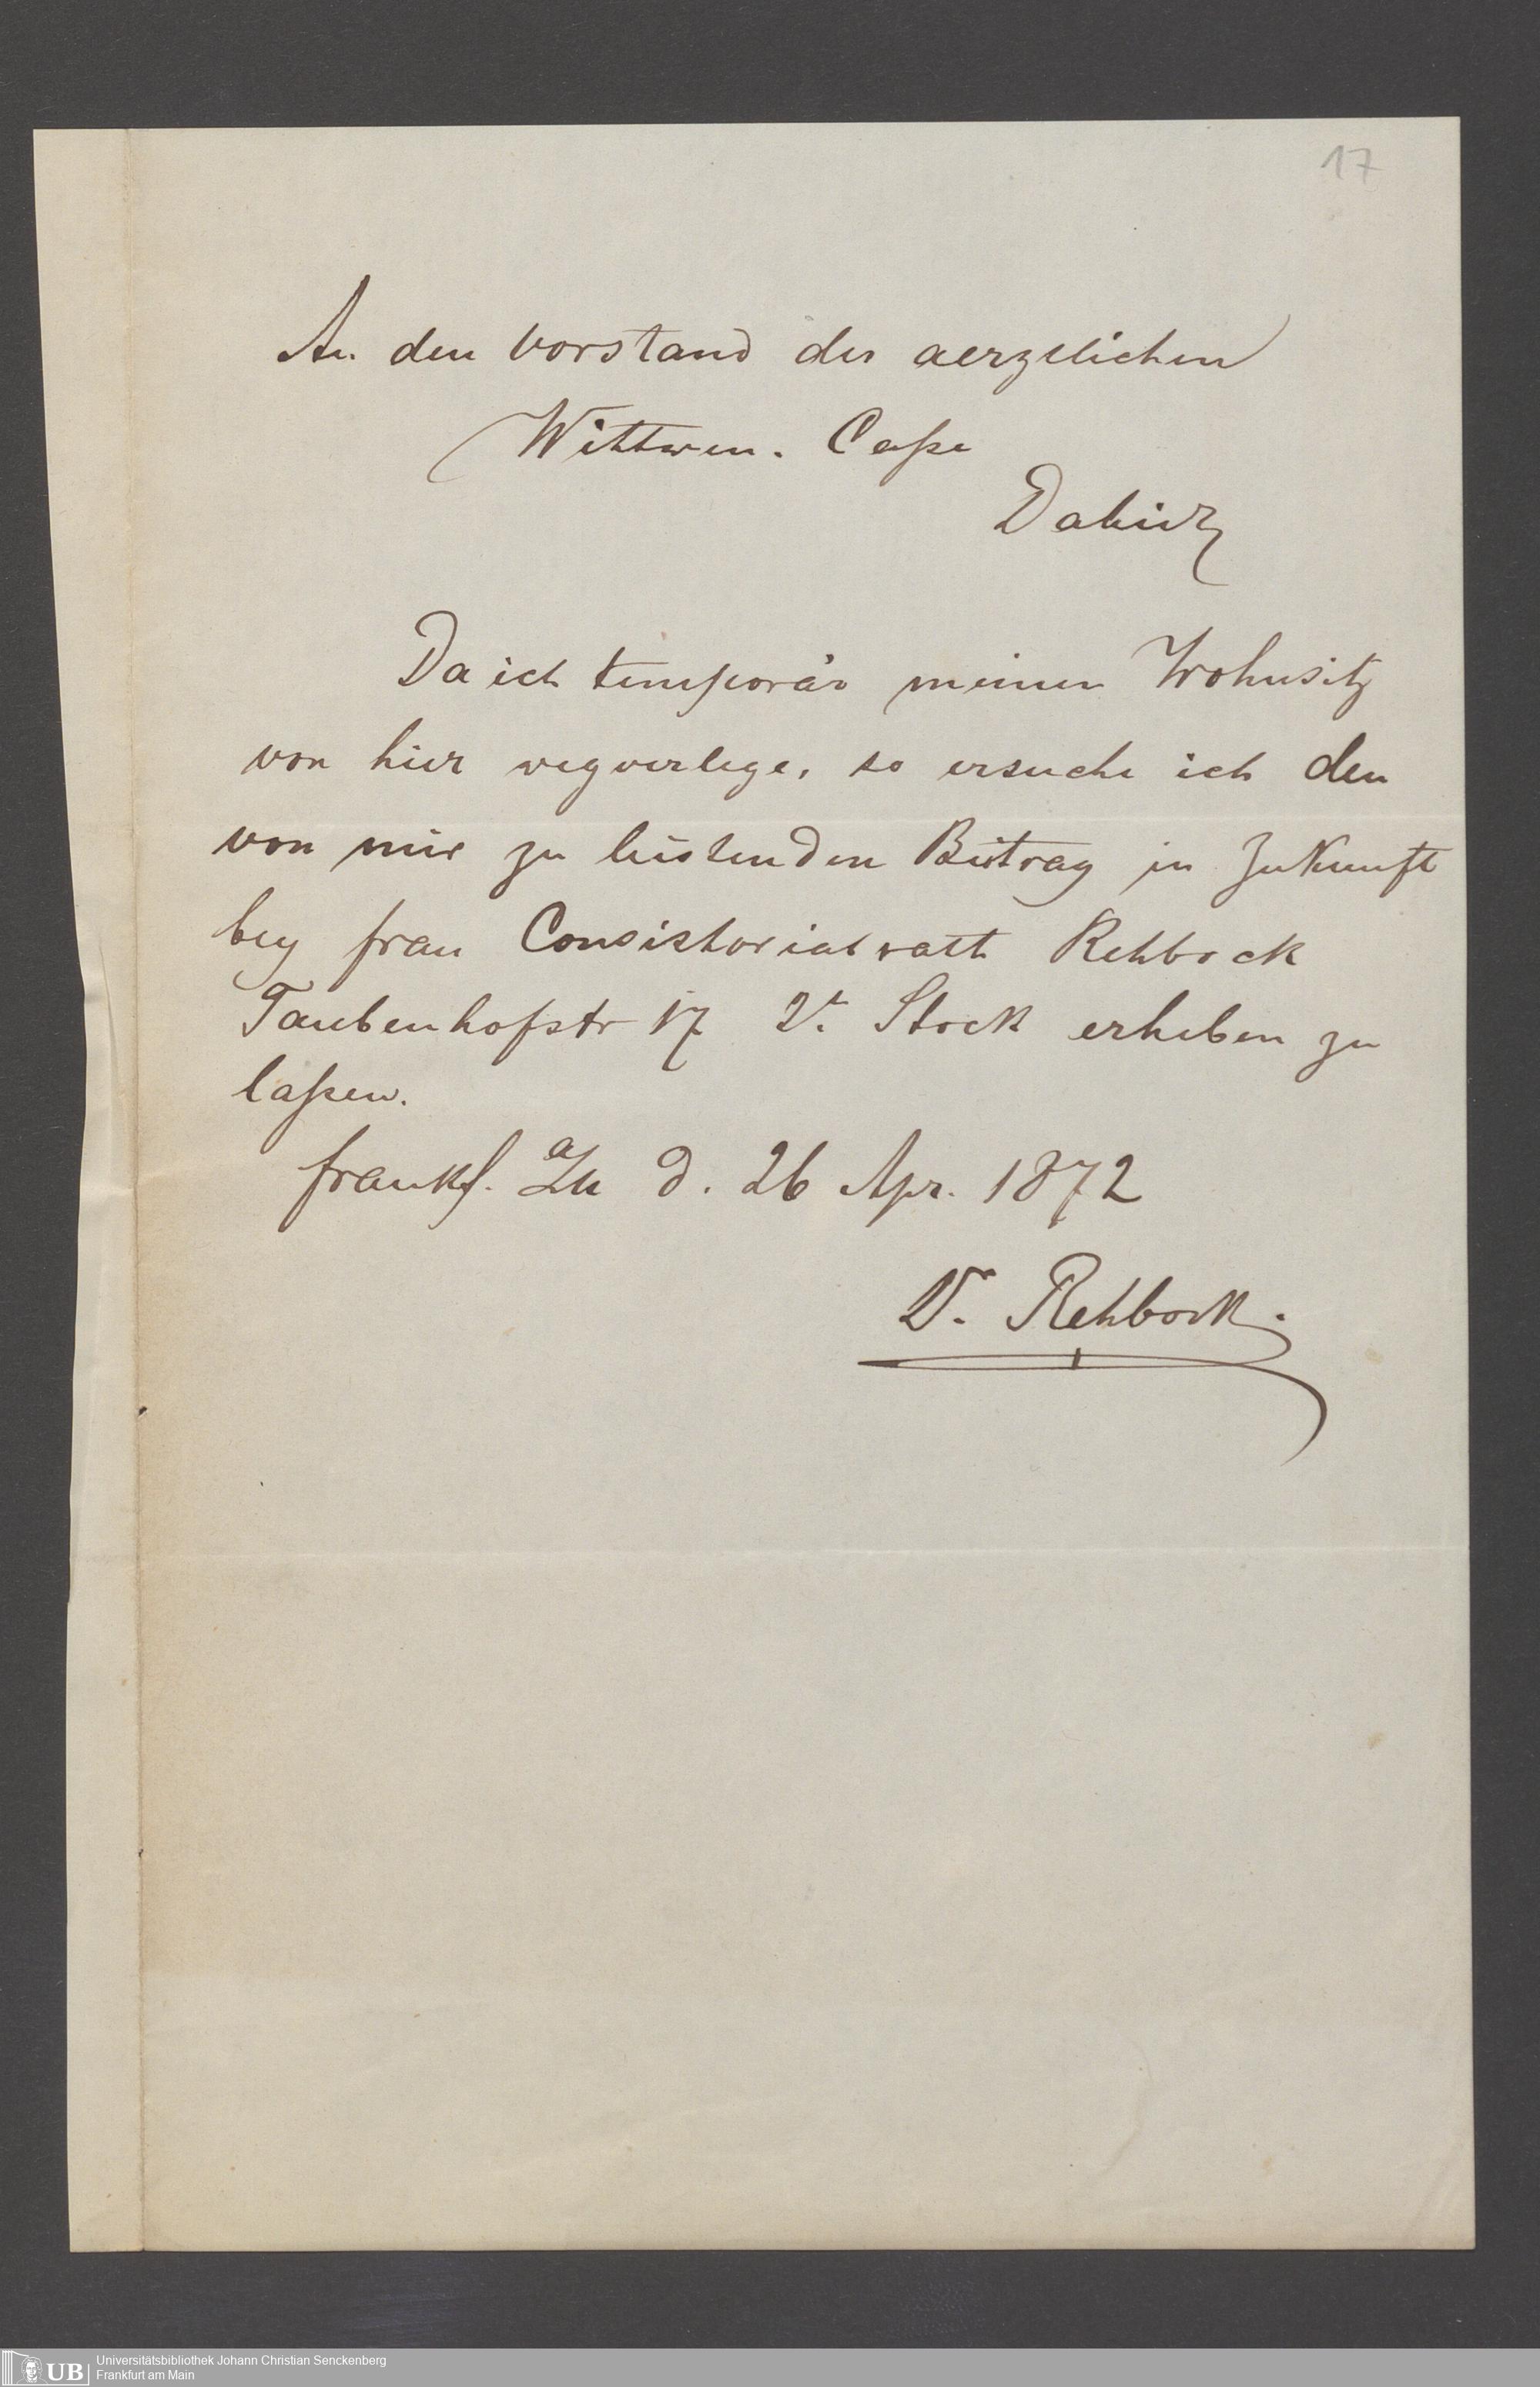 17
An den Vorstand der aerztlichen
Wittwen. Casse
Dahier
Da ich temporär meinen Wohnsitz
von hier wegverlege, so ersuche ich den
von mir zu leistenden Beitrag in Zukunft
bey Frau Consistorialrath Rehbock
Taubenhofstr 17 2t. Stock erheben zu
lassen.
Frankf. a/M d. 26 Apr. 1872
Dr. Rehbock.
UB
Universitätsbibliothek Johann Christian Senckenberg
Frankfurt am Main